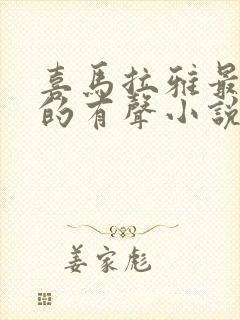 喜馬拉雅最
的有聲小說
姜家彪